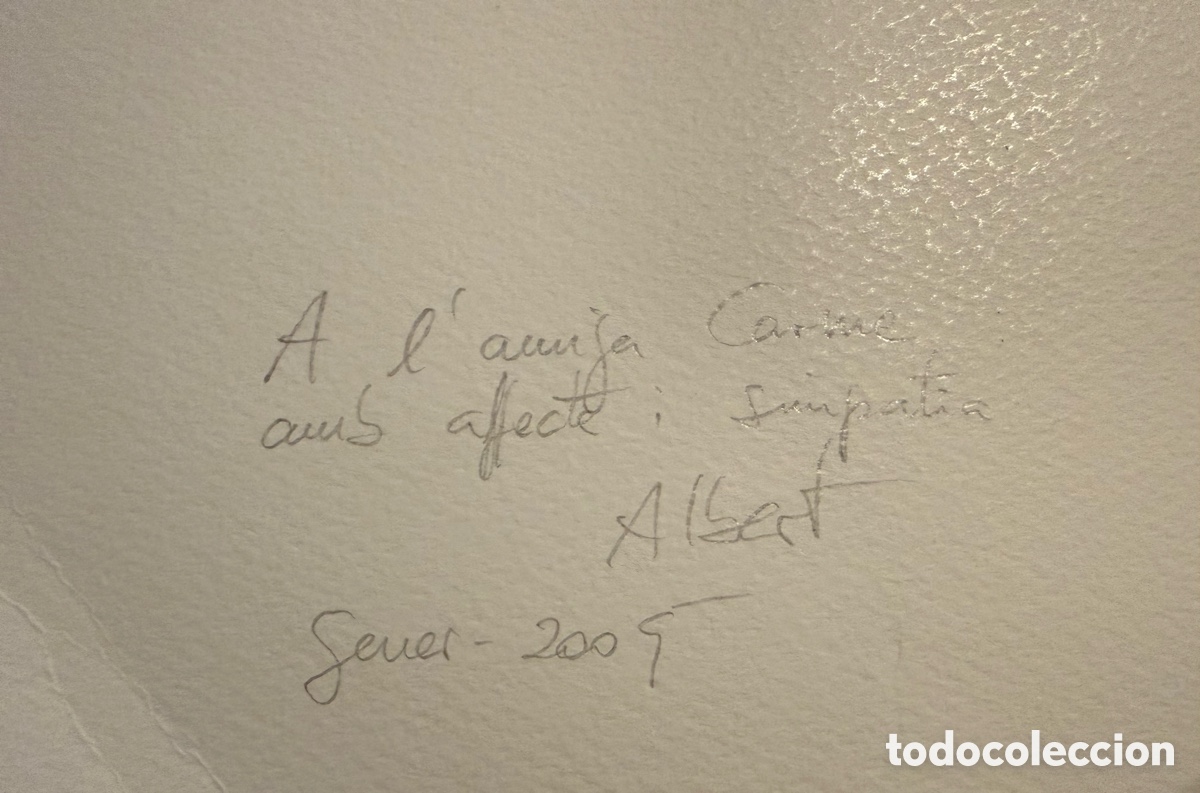 A l'amiga Carme,
amb affecte i simpatia
Albert
Gener - 2005
todocoleccion